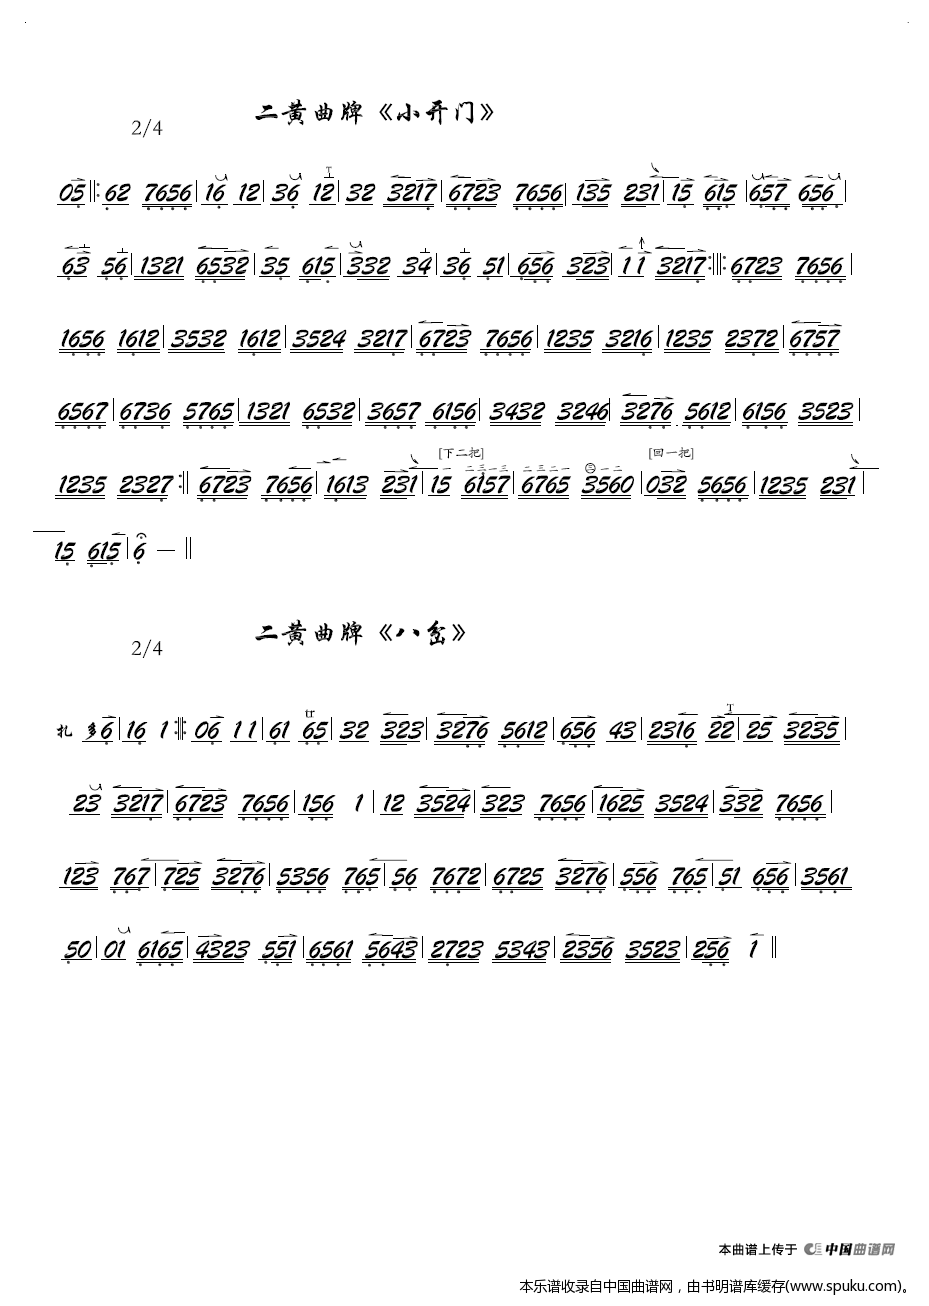 二黄曲牌《小开门》
2/4
05‖:62 7656|16 12|36 12|32 3217|6723 7656|135 231|15 615|657 656|
63 56|1321 6532|35 615|332 34|36 51|656 323|11 3217:‖:6723 7656|
1656 1612|3532 1612|3524 3217|6723 7656|1235 3216|1235 2372|6757
6567|6736 5765|1321 6532|3657 6156|3432 3246|3276 5612|6156 3523|
[下二把] [回一把]
一 二三一三 二三二一 三一二
1235 2327:‖6723 7656|1613 231|15 6157|6765 3560|032 5656|1235 231|
15 615|6 —‖
二黄曲牌《八岔》
2/4
tr
扎 多6|16 1:‖:06 11|61 65|32 323|3276 5612|656 43|2316 22|25 3235|
23 3217|6723 7656|156 1|12 3524|323 7656|1625 3524|332 7656|
123 767|725 3276|5356 765|56 7672|6725 3276|556 765|51 656|3561
50|01 6165|4323 551|6561 5643|2723 5343|2356 3523|256 1‖
本曲谱上传于 中国曲谱网
本乐谱收录自中国曲谱网，由书明谱库缓存(www.spuku.com)。